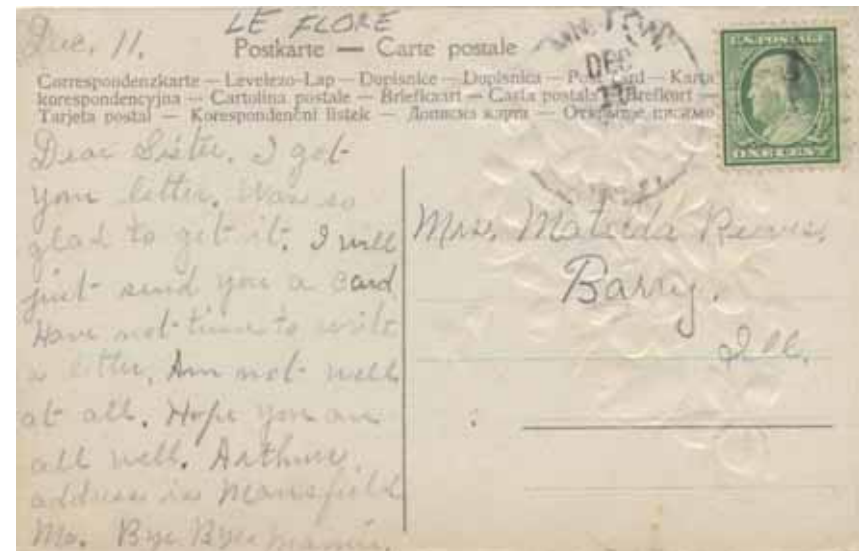 LE FLORE
Dec. 11.
Postkarte — Carte postale
Correspondenzkarte — Levelezo-Lap — Dopisnice — Dopisnica — Post Card — Karta
korespondencyjna — Cartolina postale — Briefkaart — Carta postala — Brefkort —
Tarjeta postal — Korespondenční listek — Дописна карта — Открытое письмо
DEC
11
U.S. POSTAGE
ONE CENT
Dear Sister. I got
your letter. Was so
glad to get it. I will
just send you a card
Have not time to write
a letter. Am not well
at all. Hope you are
all well. Arthurs
address is Mansfield
Mo. Bye Bye Mamie.
Mrs. Matilda Reeves.
Barry.
Ill.